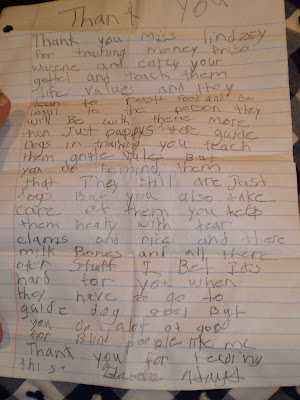 Thank you
Thank you miss lindzey
for training money
and
gottel and teach them
life values and they
lean to resit food and Be
loyill to the person they
will Be with there more
thin Just puppys there guide
Dogs in training you teach
them grate vales But
you do remind them
that They still are Just
dogs But you also take
care of them you keep
them healty with
clams and rice and there
milk Bones and all there
oter stuff I Bet its
hard for you when
they have to go to
guide dog But
you do alot of good
for Blind people like me
Thank you for
this